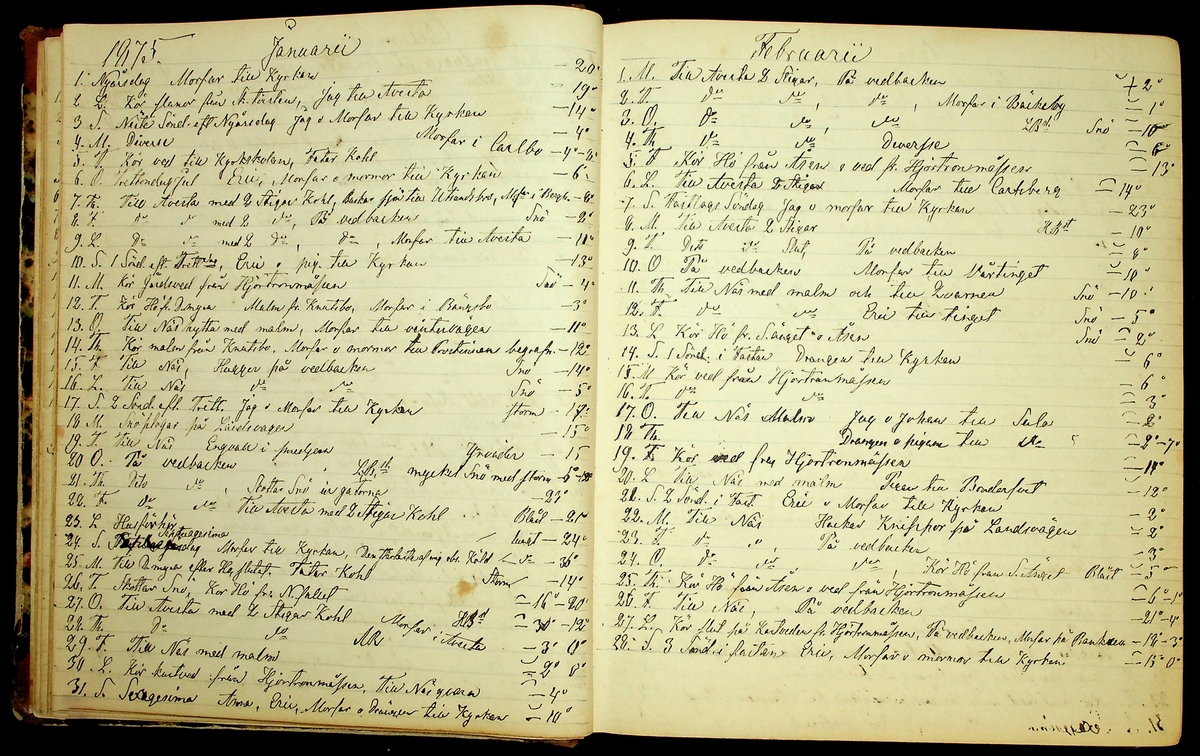 1875. Januarii
1. Nyårsdag Morfar till Kyrkan — 20°
2. L. Kör flanor från N. tvisten, Jag till Avesta — 19°
3. S. Näste Sönd. eft Nyårsdag Jag o Morfar till Kyrkan — 14°
4. M. Diverse Morfar i Carlbo — 4°
5. T. Kör ved till Kyrkskolan, Fater Kohl — 4°
6. O. Trettondagjul Eric, Morfar o mormor till Kyrkan — 6°
7. Th. Till Avesta med 2 Stigar Kohl,
8. F. do do med 2 do, På vedbacken Snö — 2°
9. L. do do med 2 do, do, Morfar till Avesta — 11°
10. S. 1 Sönd. eft. Trett, Eric o pig. till Kyrkan — 13°
11. M. Kör Gardsved från Hjortronmåssen Snö — 4°
12. T. Kör Hö fr. Dmyra Malm fr. Knutsbo, Morfar i Bängsbo — 3°
13. O. Till Näs hytta med malm, Morfar till vintervägen — 11°
14. Th. Kör malm från Knutsbo, Morfar o mormor till begrafn. — 12°
15. F. Till Näs, Hugger på vedbacken Snö — 14°
16. L. Till Näs do do Snö — 5°
17. S. 2 Sönd. eft. Trett. Jag o Morfar till Kyrkan storm — 19°
18. M. Snöplogar på Landsvägen — 15°
19. T. Till Näs Engvall i smedjan Yrväder — 15
20. O. På vedbacken mycket Snö med storm — 5°
21. Th. Dito do, Skottar Snö ur gatorna — 23°
22. F. do do Till Avesta med 2 Stigar Kohl Blåst — 21°
23. L. Husförhör lugt — 24°
24. S. Septuagesima Morfar till Kyrkan, Köld — 36°
25. M. Till Dmyra efter Höflutet. Fater Kohl Storm — 14°
26. T. Skottar Snö, Kör Hö frå N. falet — 16° — 20°
27. O. Till Avesta med 2 Stigar Kohl — 12°
28. Th. do do Morfar i Avesta — 3° 0°
29. F. Till Näs med malm — 2° 8°
30. L. Kör kastved från Hjortronmåssen, Till Näs qvarn — 4°
31. S. Sexagesima Anna, Eric, Morfar o Drängen till Kyrkan — 10°
Februarii
1. M. Till Avesta 2 Stigar, På vedbacken + 2°
2. T. do do, do, Morfar i Bäckeby — 1°
3. O. do do, do Snö — 10°
4. Th. do do Diverse — 6°
5. F. Kör Hö från Åsen o ved fr. Hjortronmåssen — 13°
6. L. Till Avesta 2 Stigar Morfar till Carlsberg — 14°
7. S. Fastlags Söndag Jag o morfar till Kyrkan — 23°
8. M. Till Avesta 2 Stigar — 10°
9. T. Dito do Slut, På vedbacken — 8°
10. O På vedbacken Morfar till Vårtinget — 10°
11. Th. Till Näs med malm och till Qvarnen Snö — 10°
12. F. do do Eric till tinget Snö — 5°
13. L Kör Hö fr. S. änget o Åsen Snö — 2°
14. S. 1 Sönd. i Fastan Drängen till Kyrkan — 6°
15. M Kör ved från Hjortronmåssen — 6°
16. T. do do — 3°
17. O. Till Näs Malm Jag o Johan till Sala — 2°
18 Th. Drängen o pigan till do — 2° — 7°
19. F. Kör ved från Hjortronmåssen — 14°
20. L Till Näs med malm till Bondersvet — 12°
21. S. 2 Sönd. i Fast. Eric o Morfar till Kyrkan — 2°
22. M. Till Näs Hackar Knippor på Landsvägen — 2°
23. T do ", På vedbacken — 3°
24. O. do do Kör Hö från S. Änget Blåst — 5°
25. Th. Kör Hö från Åsen o ved från Hjortronmåssen — 6° — 1°
26. F. Till Näs, På vedbacken — 21° — 4°
27. L. Kör slut på Kastveden fr. Hjortronmåssen, På vedbacken, Morfar på Banken — 18° — 3°
28. S. 3 Sönd. i fastan Eric, Morfar o mormor till Kyrkan — 15° 0°